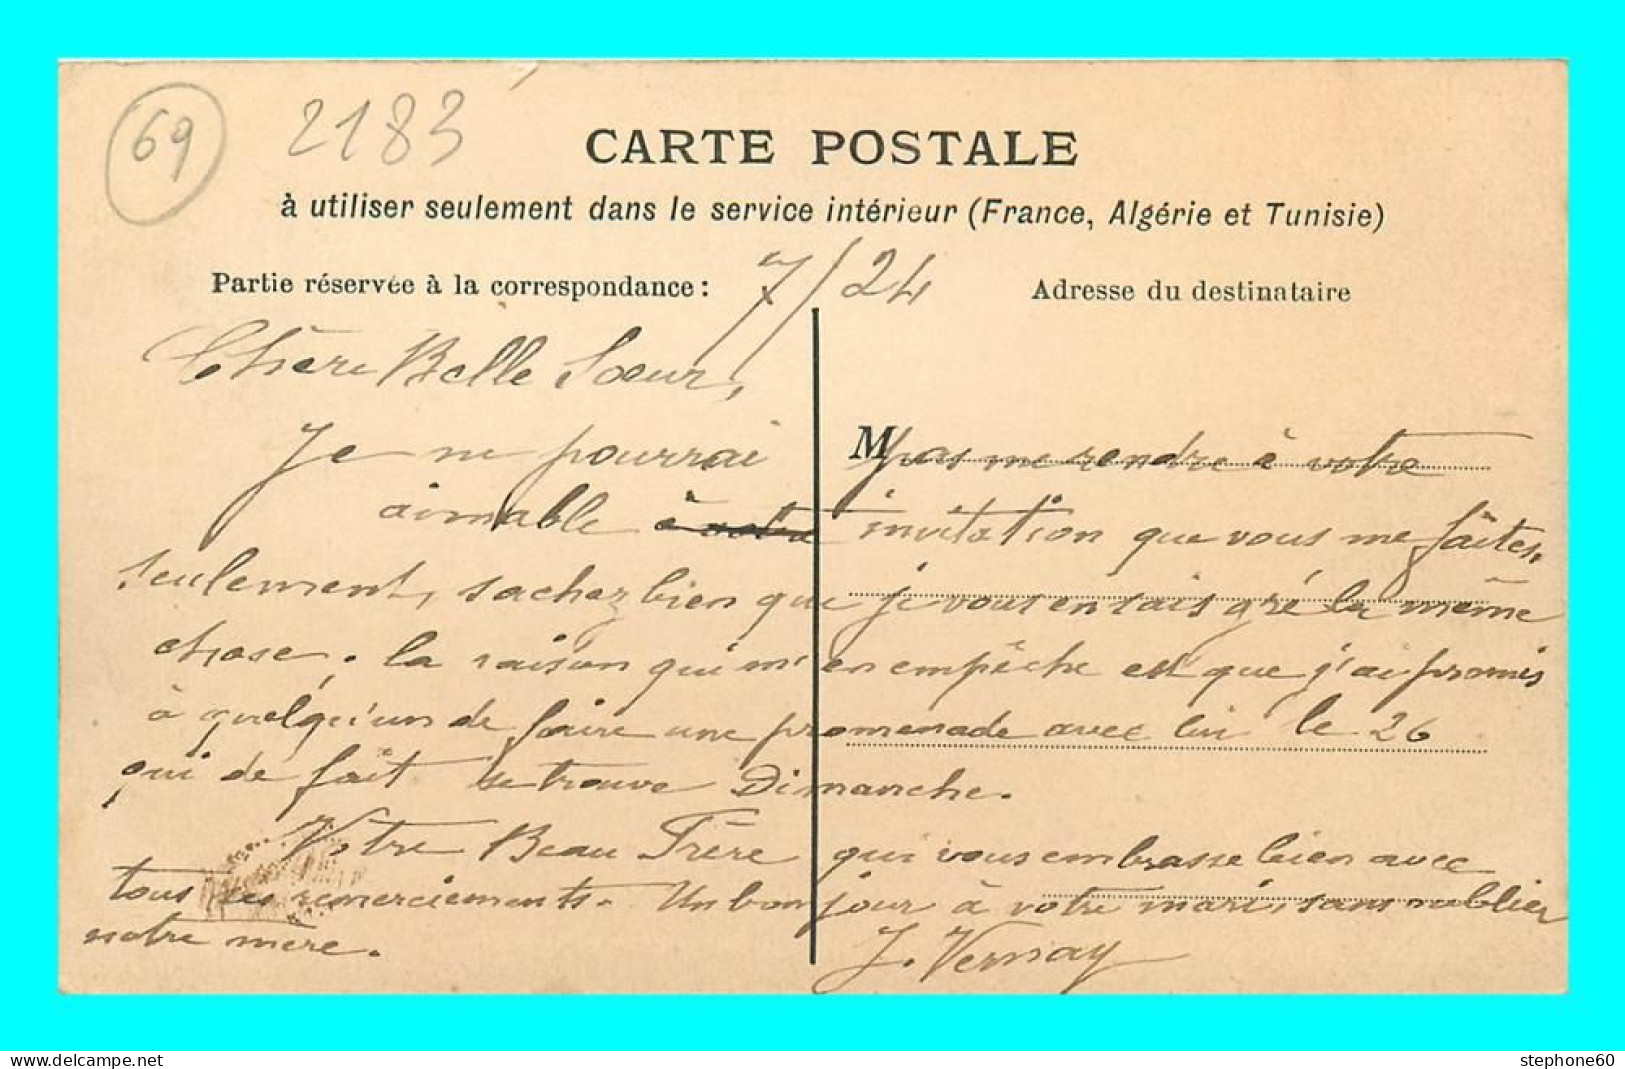 69 2183
CARTE POSTALE
à utiliser seulement dans le service intérieur (France, Algérie et Tunisie)
Partie réservée à la correspondance : 7/24 Adresse du destinataire
Chère Belle Sœur,
Je ne pourrai M pas me rendre à votre
aimable à votre invitation que vous me faîtes,
seulement, sachez bien que je vous en sais gré la même
chose. la raison qui m'en empêche est que j'ai promis
à quelqu'un de faire une promenade avec lui le 26
qui de fait se trouve Dimanche.
Votre Beau Frère qui vous embrasse bien avec
tous ses remerciements. Un bonjour à votre mari, sans oublier
notre mère. J. Vernay
stephone60
www.delcampe.net